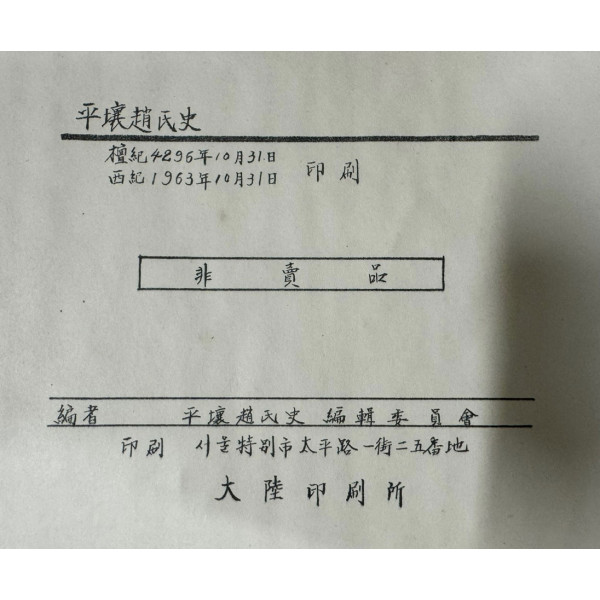 平壤趙氏史
檀紀4296年10月31日
西紀1963年10月31日 印刷
非賣品
編者 平壤趙氏史 編輯委員會
印刷 서울特別市太平路一街二五番地
大陸印刷所